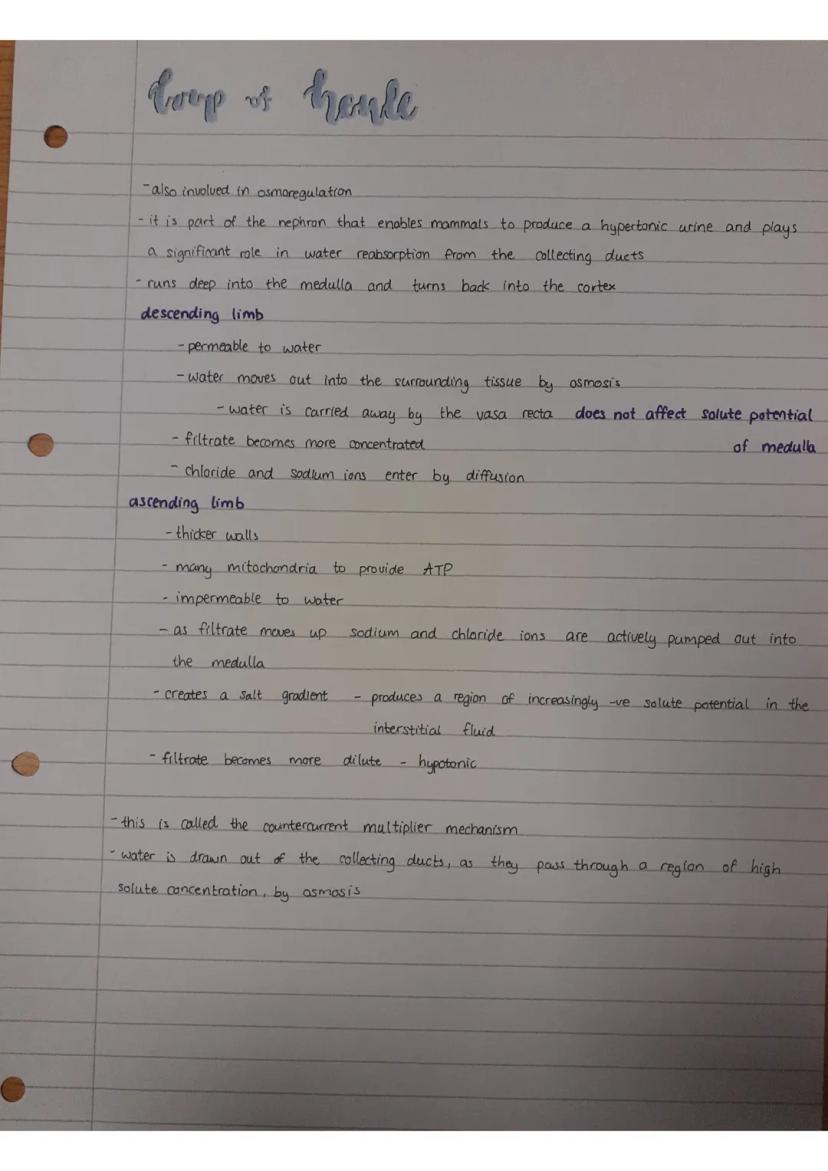 Loop of henle
- also involved in osmoregulation
- it is part of the nephron that enables mammals to produce a hypertonic urine and plays
a significant role in water reabsorption from the collecting ducts
- runs deep into the medulla and turns back into the cortex
descending limb
- permeable to water
- water moves out into the surrounding tissue by osmosis
- water is carried away by the vasa recta does not affect solute potential
of medulla
- filtrate becomes more concentrated
- chloride and sodium ions enter by diffusion
ascending limb
- thicker walls
- many mitochondria to provide ATP
- impermeable to water
- as filtrate moves up sodium and chloride ions are actively pumped out into
the medulla
- creates a salt gradient - produces a region of increasingly -ve solute potential in the
interstitial fluid
- filtrate becomes more dilute - hypotonic
- this is called the countercurrent multiplier mechanism
- water is drawn out of the collecting ducts, as they pass through a region of high
solute concentration, by osmosis